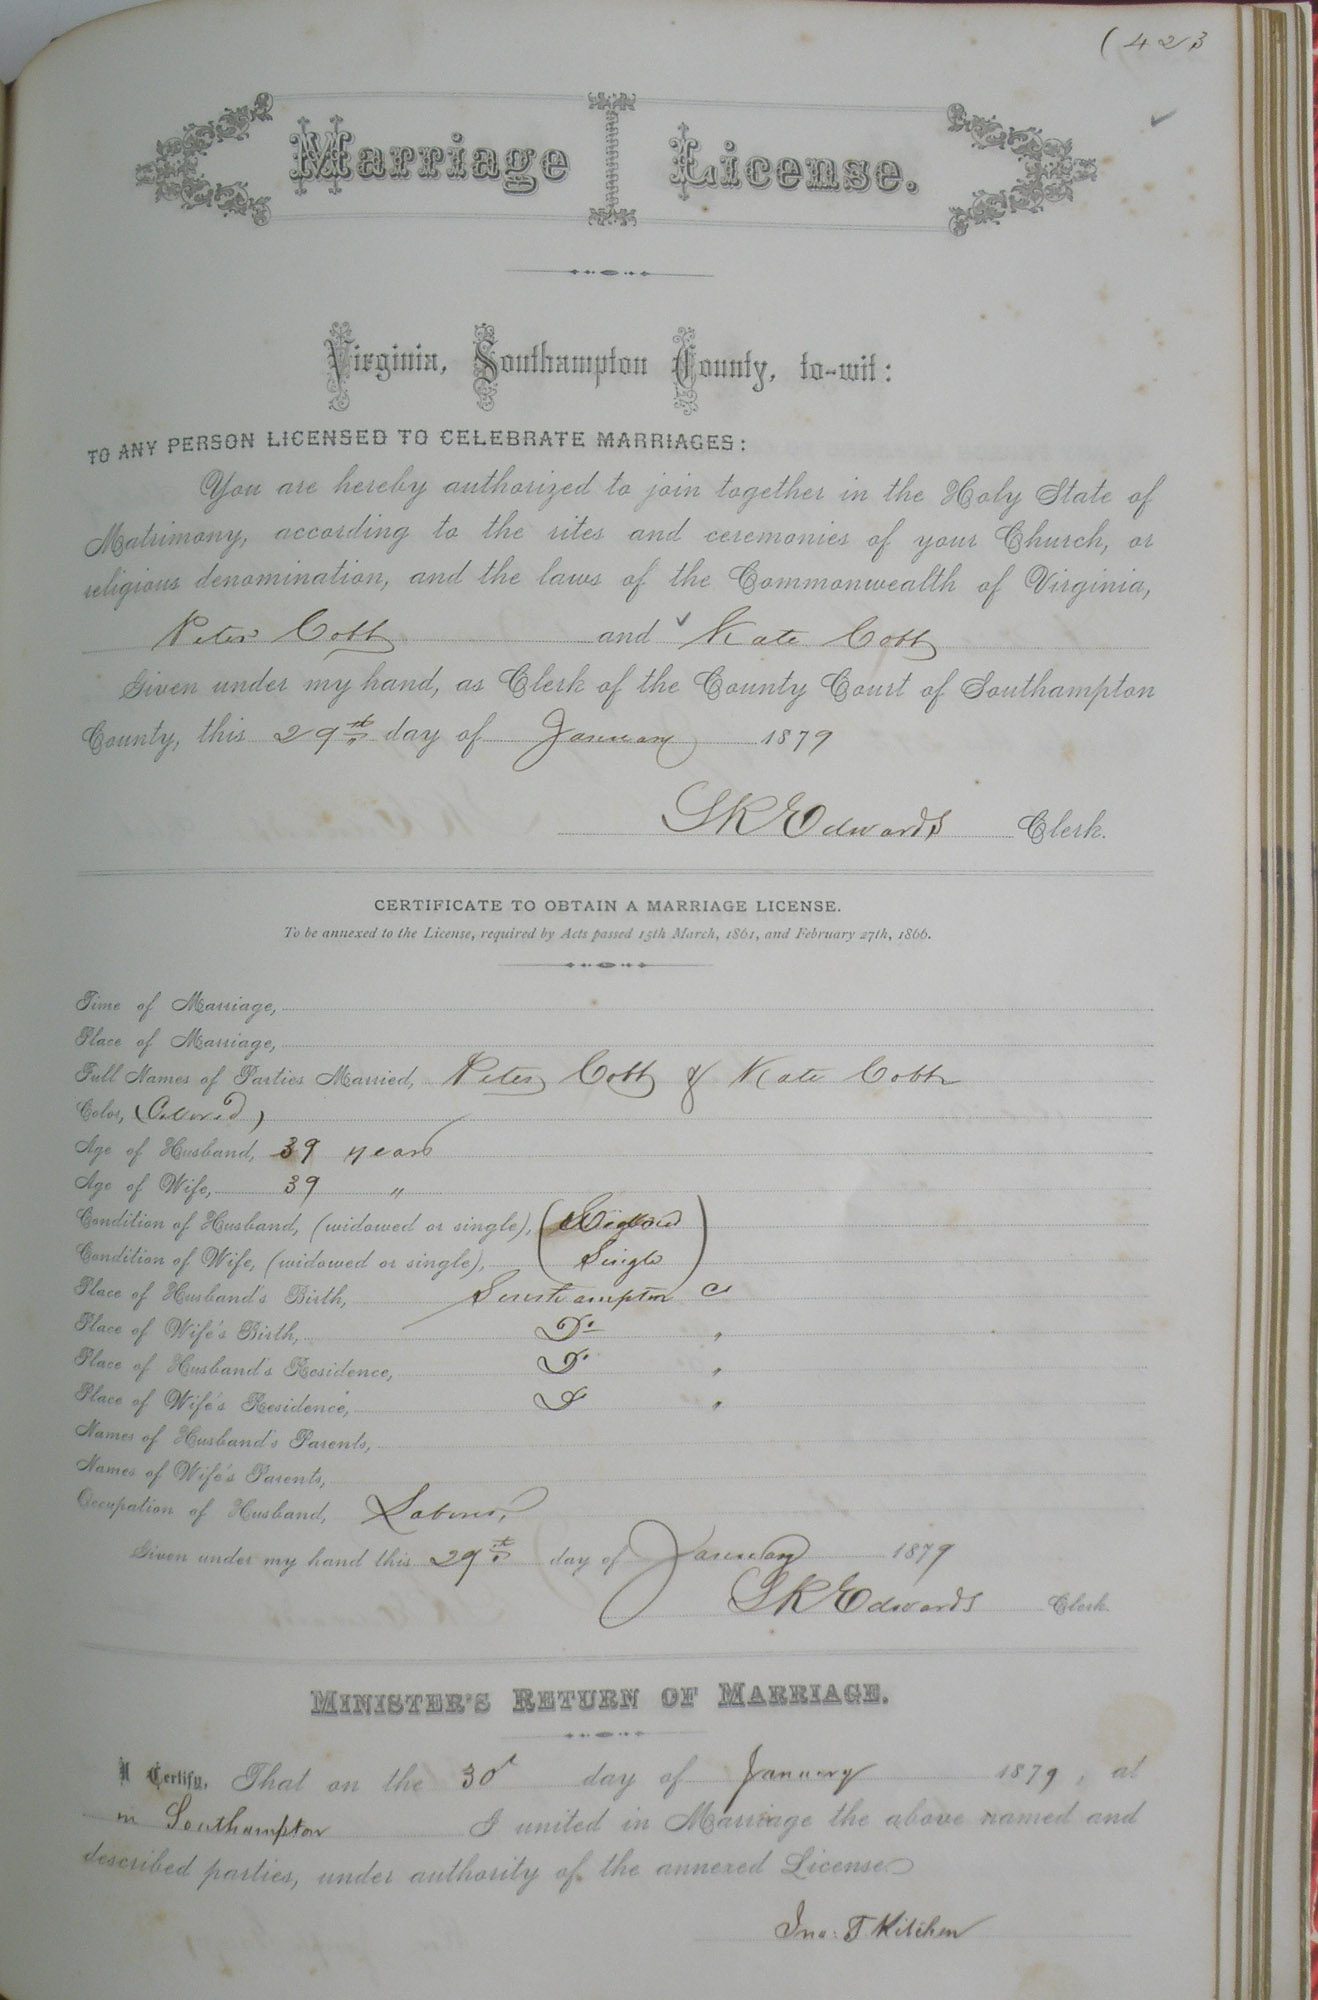 ( 423
Marriage License.
Virginia, Southampton County, to-wit:
TO ANY PERSON LICENSED TO CELEBRATE MARRIAGES:
You are hereby authorized to join together in the Holy State of
Matrimony, according to the rites and ceremonies of your Church, or
religious denomination, and the laws of the Commonwealth of Virginia,
Peter Cobb and Kate Cobb
Given under my hand, as Clerk of the County Court of Southampton
County, this 29th day of January 1879
L R Edwards Clerk.
CERTIFICATE TO OBTAIN A MARRIAGE LICENSE.
To be annexed to the License, required by Acts passed 15th March, 1861, and February 27th, 1866.
Time of Marriage,
Place of Marriage,
Full Names of Parties Married, Peter Cobb & Kate Cobb
Color, (Colored)
Age of Husband, 39 years
Age of Wife, 39 "
Condition of Husband, (widowed or single), Widowed
Condition of Wife, (widowed or single), Single
Place of Husband's Birth, Southampton Co
Place of Wife's Birth, Do "
Place of Husband's Residence, Do "
Place of Wife's Residence, Do "
Names of Husband's Parents,
Names of Wife's Parents,
Occupation of Husband, Laborer,
Given under my hand this 29th day of January 1879
L R Edwards Clerk.
MINISTER'S RETURN OF MARRIAGE.
I Certify, That on the 30 day of January 1879, at
in Southampton I united in Marriage the above named and
described parties, under authority of the annexed License
Jno. T Kitchen